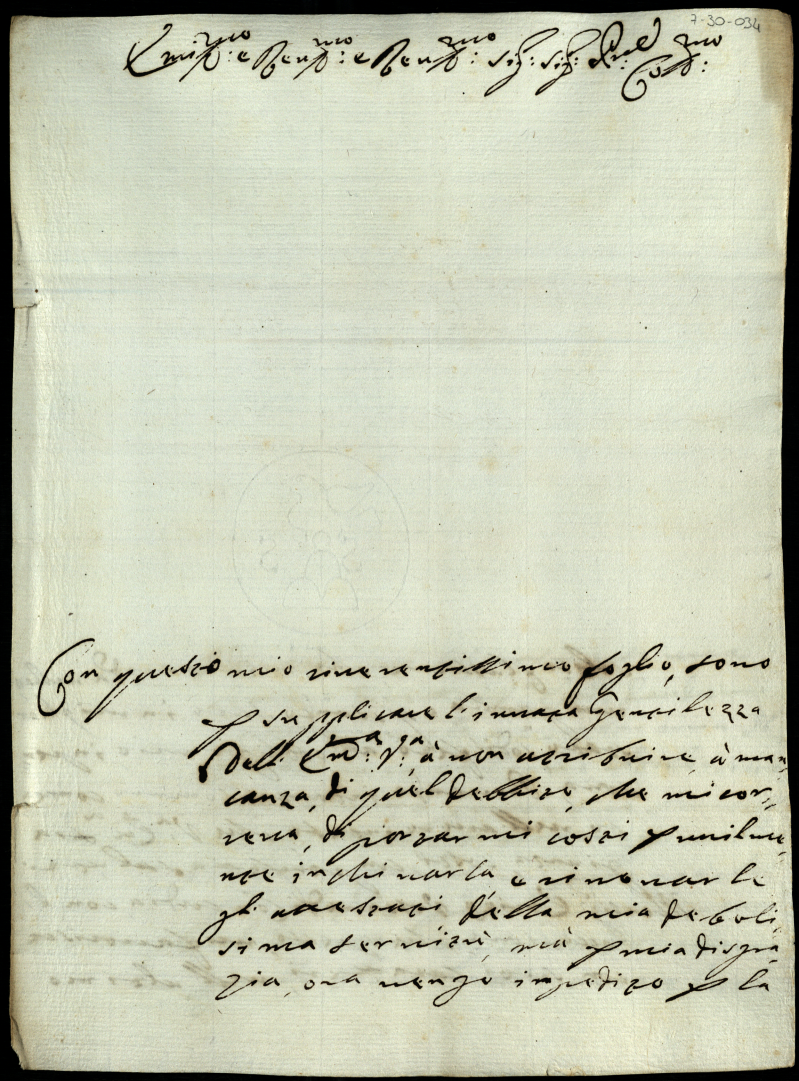 7-30-034
Emi:mo e Ren:mo e Ren:mo sig: sig: Pron
Coll:mo
Con questo mio riverentissimo foglio, sono
p supplicare l'innata Gentilezza
dell' Em:a V:a, à non atribuire, à man,,
canza, di quel debbito, che mi cor,,
reva, di portarmi costi p umilme,,
nte inchinarla, e rinovarle
gl' atestati della mia deboli,,
sima servitù, mà p mia disgra,,
zia, ora vengo impedito p la